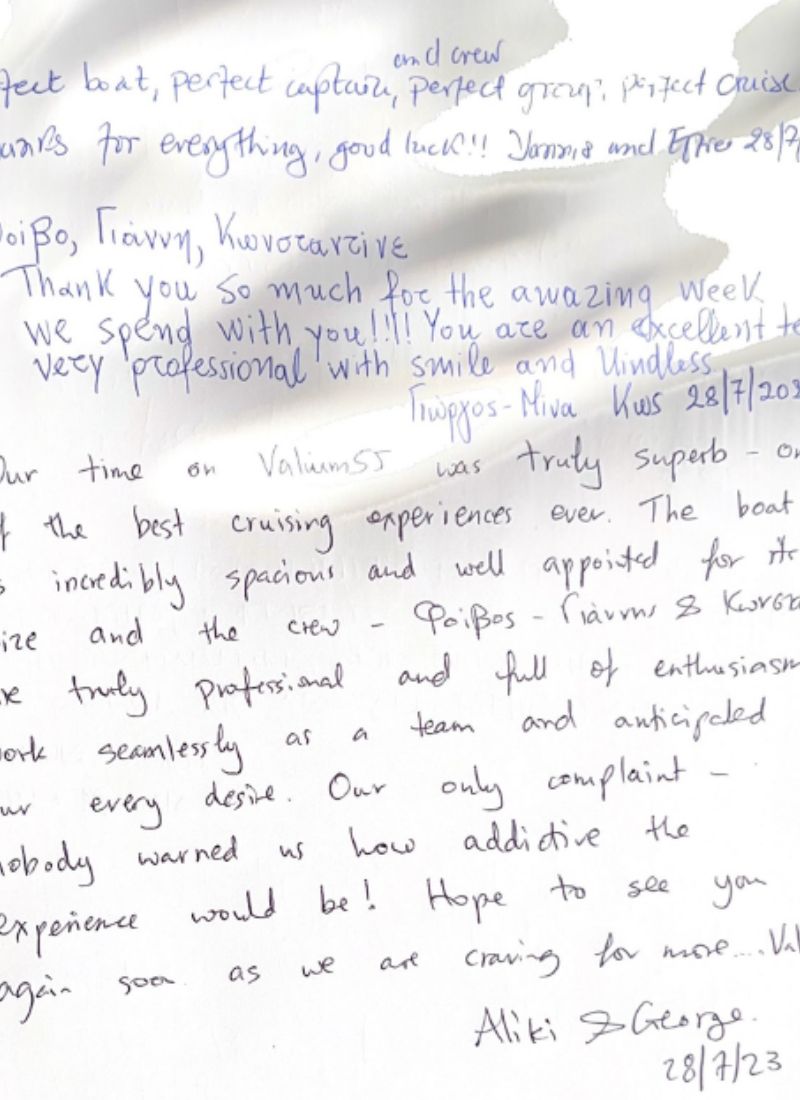 and crew
fect boat, perfect captain, perfect group, perfect cruise.
anks for everything, good luck!! Yannis and 28/7
οιβο, Γιάννη, Κωνσταντίνε
Thank you so much for the amazing week
we spend with you!!!! You are an excellent te
very professional with smile and kindless
Γιώργος - Μίνα Κως 28/7/202
Our time on Valium55 was truly superb - on
f the best cruising experiences ever. The boat
s incredibly spacious and well appointed for its
ize and the crew - Φοίβος - Γιάννης & Κωνστα
re truly professional and full of enthusiasm
ork seamlessly as a team and anticipated
ur every desire. Our only complaint -
nobody warned us how addictive the
experience would be! Hope to see you
again soon as we are craving for more....Val
Aliki & George.
28/7/23